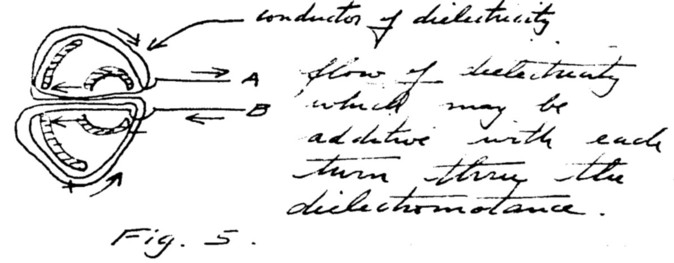 conductor of dielectricity
A
flow of dielectricity
B
which may be
additive with each
turn thru the
dielectromotance.
Fig. 5.